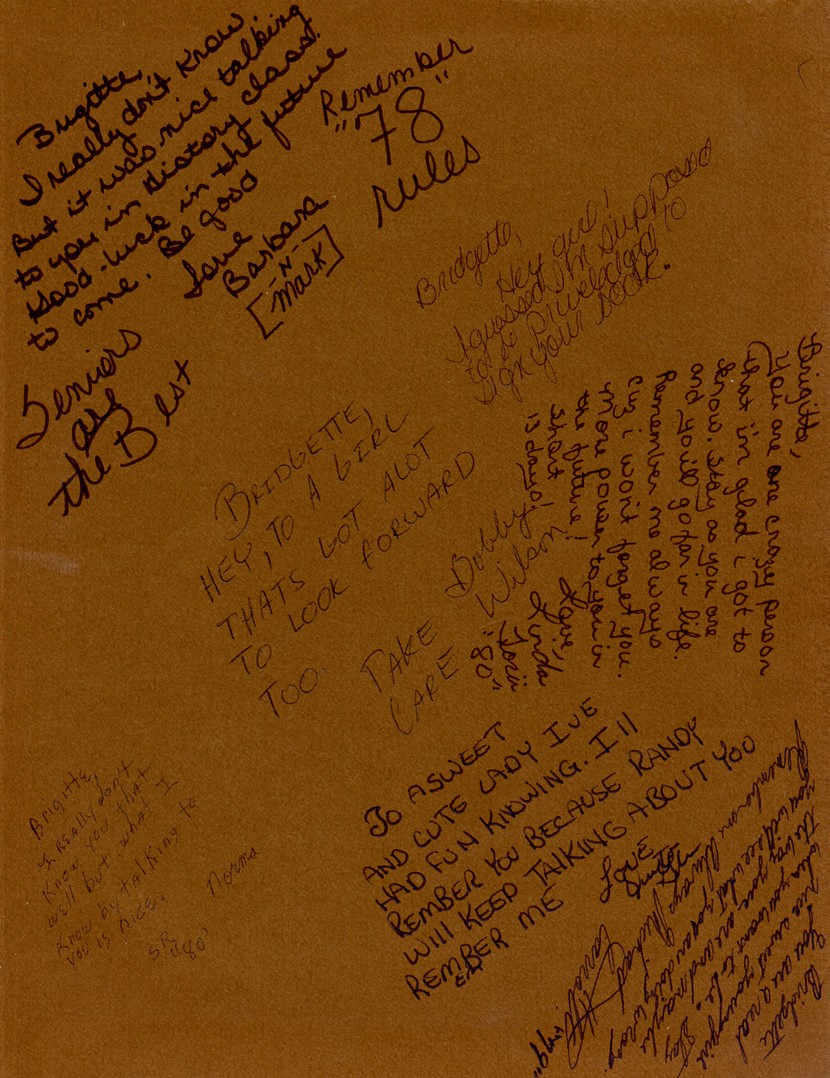 Brigitte,
I really don't know
But it was nice talking
to you in History class.
Good-luck in the future
to come. Be good
Love
Barbara
-N-
[Mark]
Seniors
are
the Best
Remember
"78"
rules
Bridgette,
Hey girl!
I guessed I'm supposed
to be priveledged to
sign your book.
Brigitte,
You are one crazy person
what i'm glad i got to
know. Stay as you are
and you'll go far in life.
Remember me always
cuz i won't forget you.
more power to you in
the future!
Short
13 days!
Love,
Linda
"80"
BRIDGETTE,
HEY, TO A GIRL
THATS GOT ALOT
TO LOOK FORWARD
TOO. TAKE
CARE
Bobby
Wilson
Brigitte,
I REALLY don't
Know you that
well but what I
Know by talking to
you is NICE.
Norma
SR.
"80"
TO A SWEET
AND CUTE LADY IVE
HAD FUN KNOWING. I ll
REMBER YOU BECAUSE RANDY
WILL KEEP TALKING ABOUT YOU
REMBER ME LOVE
Bridgette
You are a real
nice sweet young girl
the way you are and maybe
you will see what you are doing wrong
Remember me Always Michael
Carroll